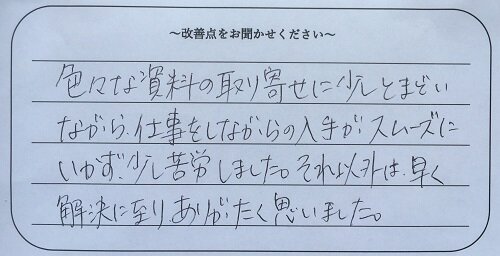 ～改善点をお聞かせください～
色々な資料の取り寄せに少しとまどい
ながら、仕事をしながらの入手がスムーズに
いかず、少し苦労しました。それ以外は、早く
解決に至りありがたく思いました。